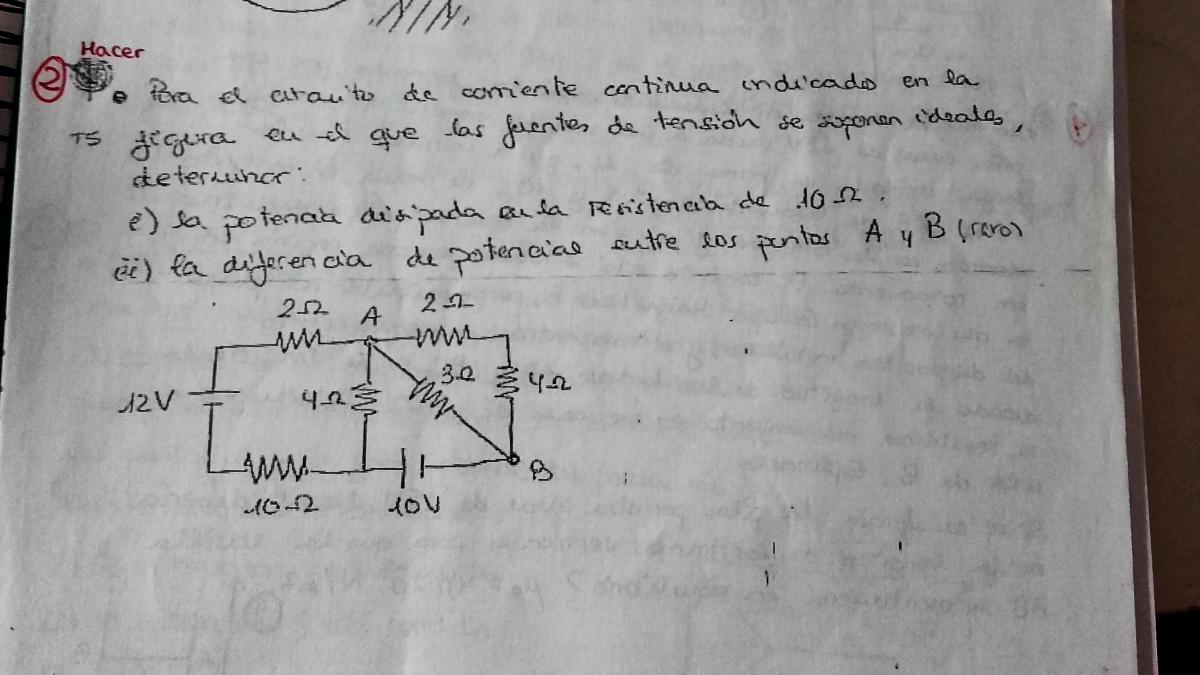 Hacer
2 • Para el circuito de corriente continua indicado en la
TS figura en el que las fuentes de tensión se suponen ideales,
determinar:
i) la potencia disipada en la resistencia de 10 Ω.
ii) la diferencia de potencial entre los puntos A y B (raro)
2Ω A 2Ω
12V 4Ω 3Ω 4Ω
10Ω 10V B